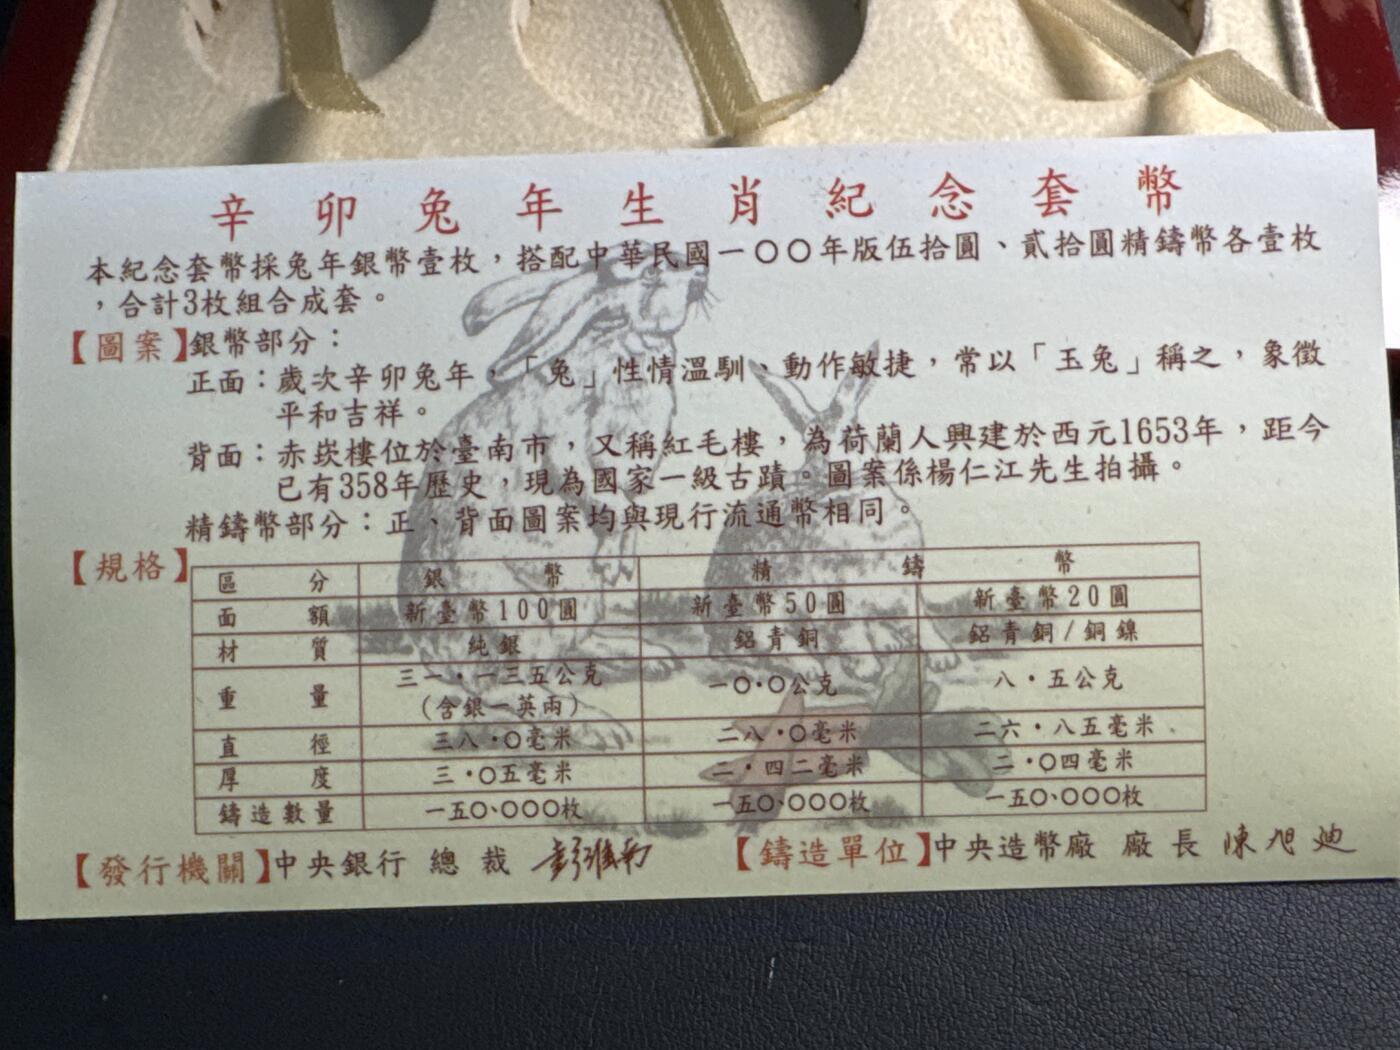 辛卯兔年生肖紀念套幣
本紀念套幣採兔年銀幣壹枚，搭配中華民國一〇〇年版伍拾圓、貳拾圓精鑄幣各壹枚
，合計3枚組合成套。
【圖案】銀幣部分：
正面：歲次辛卯兔年，「兔」性情溫馴、動作敏捷，常以「玉兔」稱之，象徵
平和吉祥。
背面：赤崁樓位於臺南市，又稱紅毛樓，為荷蘭人興建於西元1653年，距今
已有358年歷史，現為國家一級古蹟。圖案係楊仁江先生拍攝。
精鑄幣部分：正、背面圖案均與現行流通幣相同。
【規格】
區分 銀幣 精鑄幣
面額 新臺幣100圓 新臺幣50圓 新臺幣20圓
材質 純銀 鋁青銅 鋁青銅/銅鎳
重量 三一·一三五公克 一〇·〇公克 八·五公克
（含銀一英兩）
直徑 三八·〇毫米 二八·〇毫米 二六·八五毫米
厚度 三·〇五毫米 二·四二毫米 二·〇四毫米
鑄造數量 一五〇、〇〇〇枚 一五〇、〇〇〇枚 一五〇、〇〇〇枚
【發行機關】中央銀行 總裁 彭淮南 【鑄造單位】中央造幣廠 廠長 陳旭迪